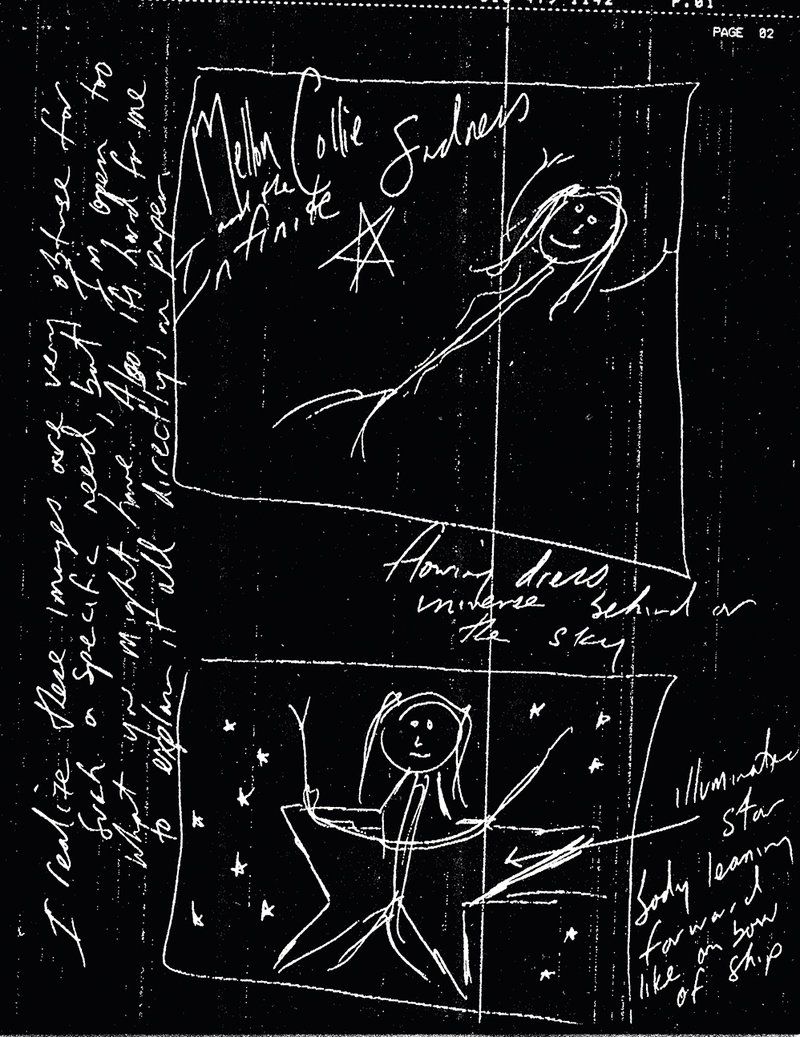 P.01
PAGE 02
Mellon Collie Sadness
and the
Infinite
flowing dress
universe behind or
the sky
illuminated
star
body leaning
forward
like on bow
of ship
I realize these images are very obtuse for
such a specific need, but I'm open too
what you might have. Also it's hard for me
to explain it all directly on paper.